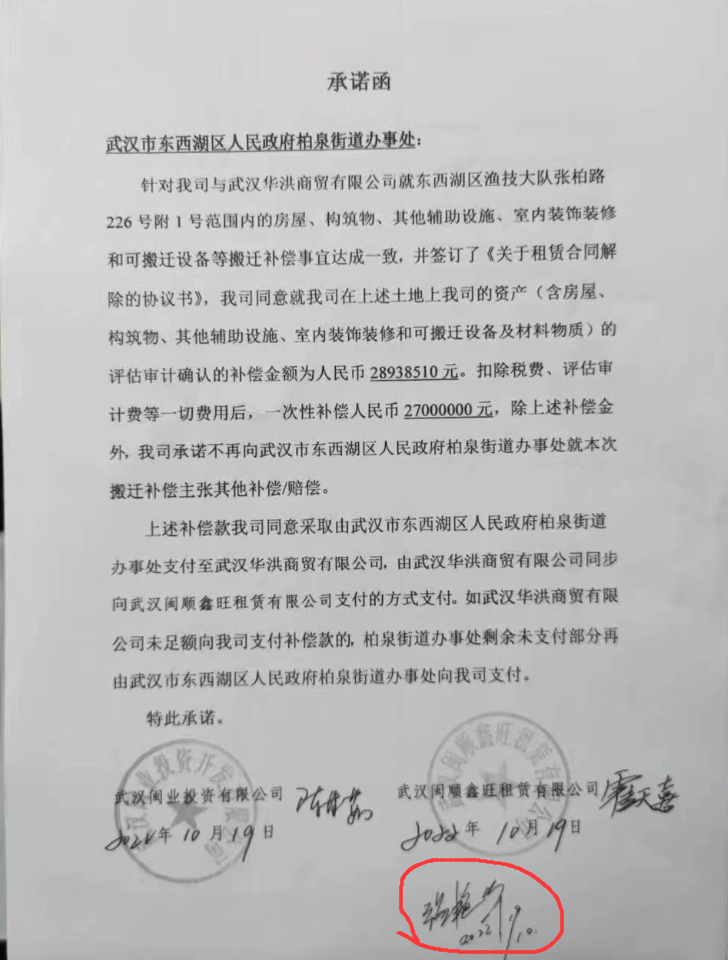 承诺函
武汉市东西湖区人民政府柏泉街道办事处：
针对我司与武汉华洪商贸有限公司就东西湖区渔技大队张柏路
226号附1号范围内的房屋、构筑物、其他辅助设施、室内装饰装修
和可搬迁设备等搬迁补偿事宜达成一致，并签订了《关于租赁合同解
除的协议书》，我司同意就我司在上述土地上我司的资产（含房屋、
构筑物、其他辅助设施、室内装饰装修和可搬迁设备及材料物质）的
评估审计确认的补偿金额为人民币28938510元。扣除税费、评估审
计费等一切费用后，一次性补偿人民币27000000元，除上述补偿金
外，我司承诺不再向武汉市东西湖区人民政府柏泉街道办事处就本次
搬迁补偿主张其他补偿/赔偿。
上述补偿款我司同意采取由武汉市东西湖区人民政府柏泉街道
办事处支付至武汉华洪商贸有限公司，由武汉华洪商贸有限公司同步
向武汉闽顺鑫旺租赁有限公司支付的方式支付。如武汉华洪商贸有限
公司未足额向我司支付补偿款的，柏泉街道办事处剩余未支付部分再
由武汉市东西湖区人民政府柏泉街道办事处向我司支付。
特此承诺。
武汉闽业投资有限公司
武汉闽顺鑫旺租赁有限公司
2022年10月19日
2022年10月19日